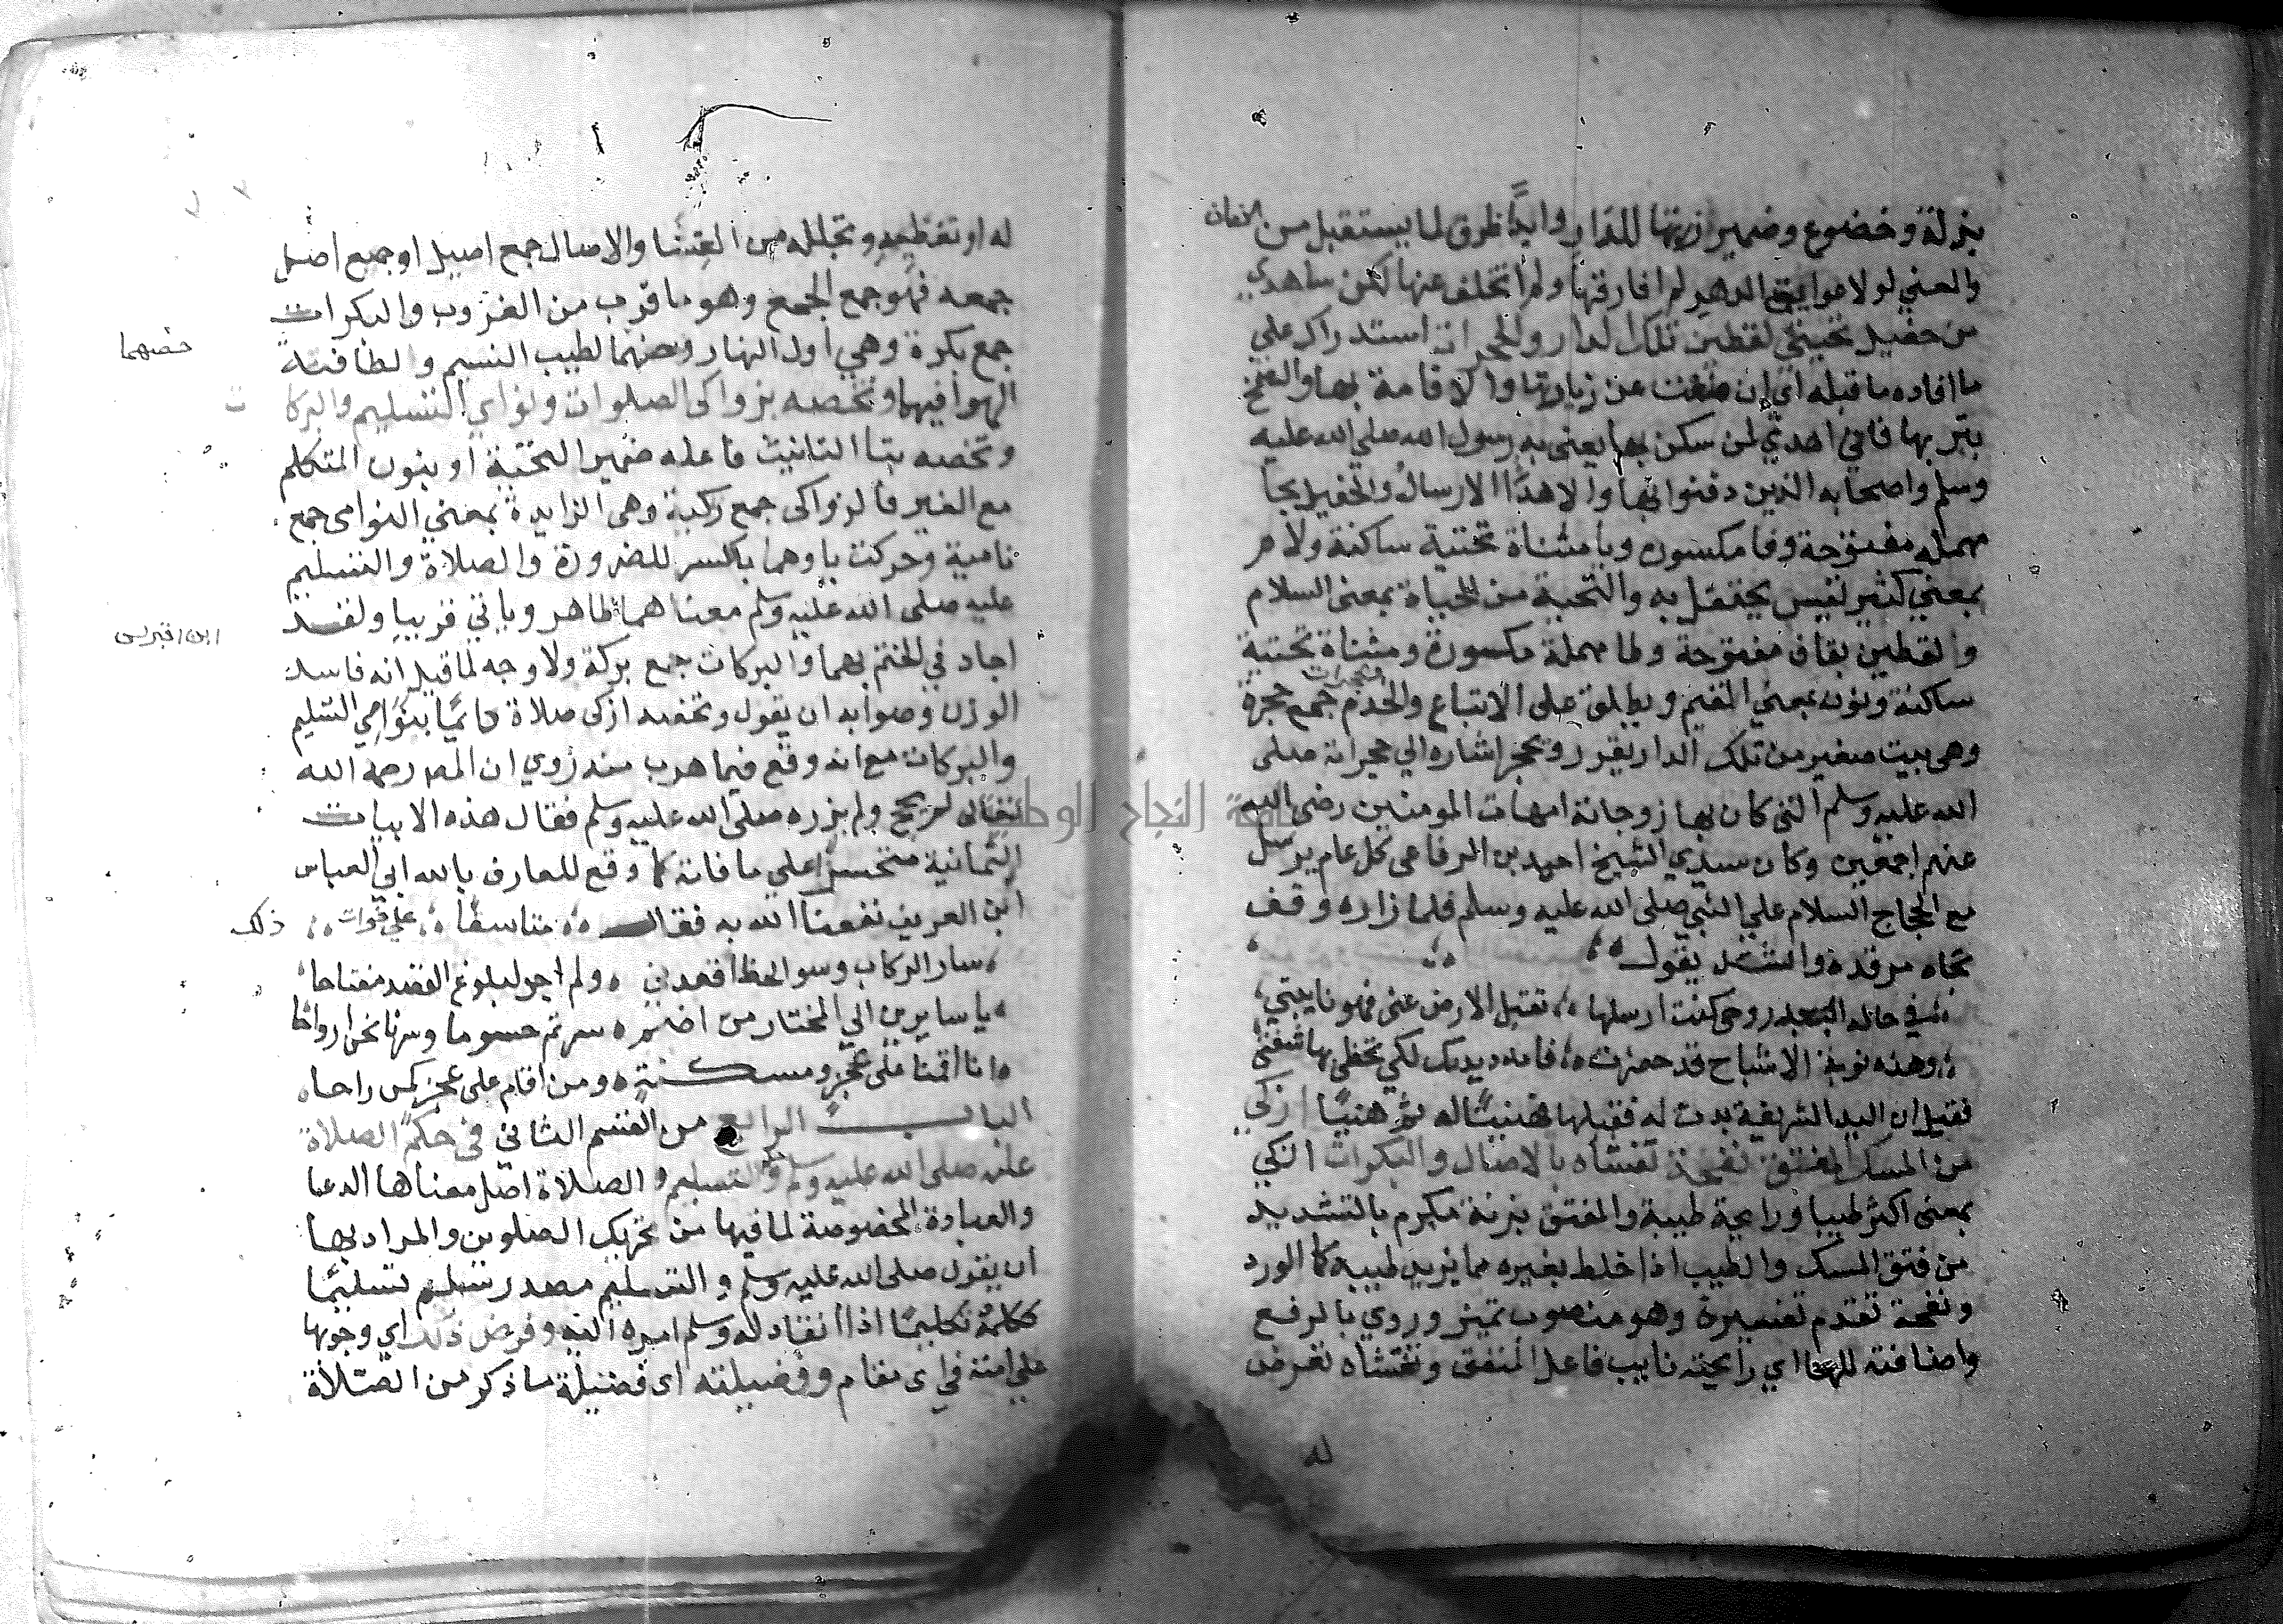 بزلة وخضوع وضمير ازرتها للدار وابدًا ظرف لما يستقبل من الازمان
والمعني لولا موانع الدهر لم افارقها ولم اتخلف عنها لكن ساهدي
من حفيل تحيتي لقطين تلك الدار والحجرات استدراك علي
ما افاده ما قبله اي ان منعت عن زيارتها والاقامة بها والتمتع
بتربها فاني اهدي لمن سكن بها يعني به رسول الله صلي الله عليه
وسلم واصحابه الذين دفنوا بها والاهدا الارسال والحفيل بحا
مهملة مفتوحة وفا مكسورة ويا مثناة تحتية ساكنة ولام
بمعني كثير نفيس يحتفل به والتحية من الحياة بمعني السلام
والقطين بقاف مفتوحة وطا مهملة مكسورة ومثناة تحتية
ساكنة ونون بمعني المقيم ويطلق علي الاتباع والخدم والحجرات جمع حجرة
وهي بيت صغير من تلك الدار اشاره الي حجراته صلى
الله عليه وسلم التي كان بها زوجاته امهات المومنين رضي الله
عنهم اجمعين وكان سيدي الشيخ احمد بن الرفاعي كل عام يرسل
مع الحجاج السلام علي النبي صلي الله عليه وسلم فلما زاره وقف
تجاه مرقده وانشد يقول
في حالة البعد روحي كنت ارسلها تقبل الارض عني فهو نايبتي
وهذه نوبة الاشباح قد حضرت فامدد يديك لكي تحظي بها شفتي
فقيل ان اليد الشريفة بدت له فقبلها فهنيئًا له ثم هنيئًا ازكي
من المسك المفتق نفحة تغشاه بالاصال والبكرات ازكي
بمعني اكثر طيبا ورايحة طيبة والمفتق بزنة مكرم بالتشديد
من فتق المسك والطيب اذا خلط بغيره مما يزيد طيبه كما الورد
ونفحة تقدم تفسيره وهو منصوب تمييز وروي بالرفع
واضافته للها اي رايحته نايب فاعل المفتق وتغشاه تعرض
له
له او تغطيه وتجلله من الغشا والاصال جمع اصيل او جمع اصل
جمعه فهو جمع الجمع وهو ما قرب من الغروب والبكرات
جمع بكرة وهي اول النهار وخصهما لطيب النسيم ولطافة
خصهما
الهوا فيهما وتخصه بزواكي الصلوات ونوامي التسليم والبركات
وتخصه بتا التانيث فاعله ضمير التحية او بنون المتكلم
مع الغير والزواكي جمع زاكية وهي الزايدة بمعني النوامي جمع
نامية وحركت ياوهما بالكسر للضرورة والصلاة والتسليم
عليه صلى الله عليه وسلم معناهما ظاهر وياتي قريبا ولقد
ابن اقبرس
اجاد في الختم بهما والبركات جمع بركة ولا وجه لما قيل انه فاسد
الوزن وصوابه ان يقول وتخصه ازكى صلاة دائمًا بنوامي التسليم
والبركات مع انه وقع فيما هرب منه روي ان المص رحمه الله
تعالى لم يحج ولم يزره صلى الله عليه وسلم فقال هذه الابيات
الثمانية متحسرا علي ما فاته كما وقع للعارف بالله ابي العباس
ابن العريف نفعنا الله به فقال متاسفًا علي فوات ذلك
سار الركاب وسو الحظ اقعدني ولم اجد لبلوغ القصد مفتاحا
يا سايرين الي المختار من مضر سرتم جسوما وسرنا نحن ارواحا
انا اقمنا علي عجز ومسكنة ومن اقام على عجز كمن راحا
الباب الرابع من القسم الثاني في حكم الصلاة
عليه صلى الله عليه وسلم والتسليم والصلاة اصل معناها الدعا
والعبادة المخصوصة لما فيها من تحريك الصلوين والمراد بها
ان يقول صلى الله عليه وسلم والتسليم مصدر سلم تسليمًا
ككلمه تكليمًا اذا انقاد له وسلم امره اليه وفرض ذلك اي وجوبها
علي امته في اي مقام وفضيلته اي فضيلة ما ذكر من الصلاة